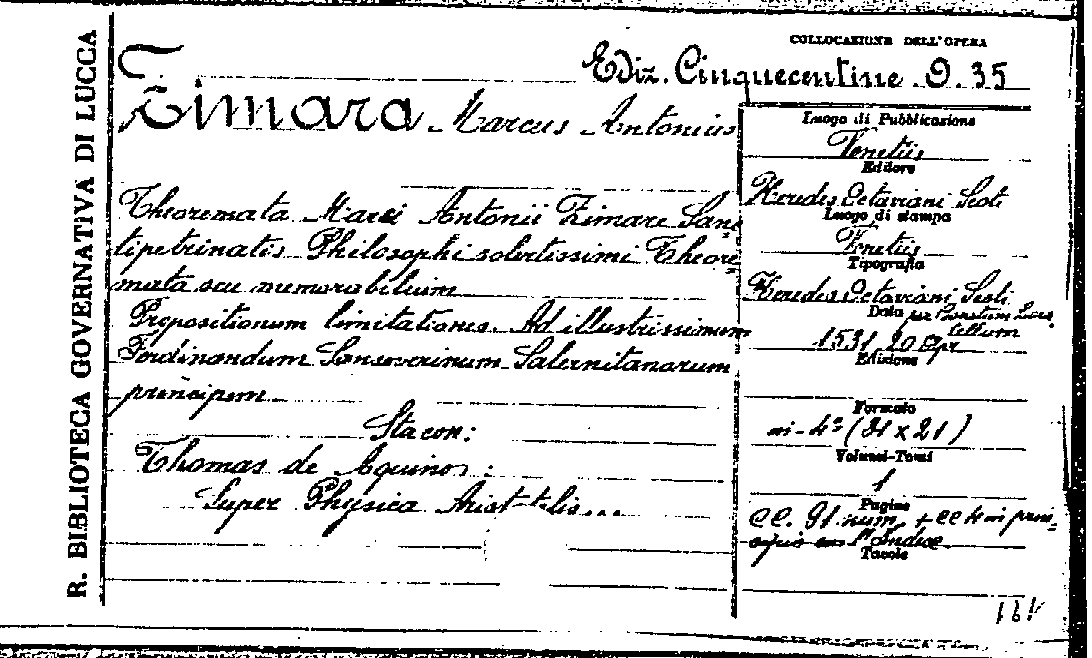 R. BIBLIOTECA GOVERNATIVA DI LUCCA
COLLOCAZIONE DELL'OPERA
Ediz. Cinquecentine O. 35
Z
Zimara Marcus Antonius
Theoremata Marci Antonii Zimare San=
tipetrinatis Philosophi solertissimi Theore=
mata seu memorabilium
Propositionum limitationes. Ad illustrissimum
Ferdinandum Sanseverinum Salernitanorum
principem
Sta con:
Thomas de Aquinos:
Super Physica Aristotelis...
Luogo di Pubblicazione
Venetiis
Editore
Heredes Octaviani Scoti
Luogo di stampa
Venetiis
Tipografia
Heredes Octaviani Scoti
Data
1531 20 Apr
Edizione
Formato
in-4° (31 x 21)
Volumi-Tomi
1
Pagine
cc. 91 num. + cc 4 in prin=
cipio
Tavole